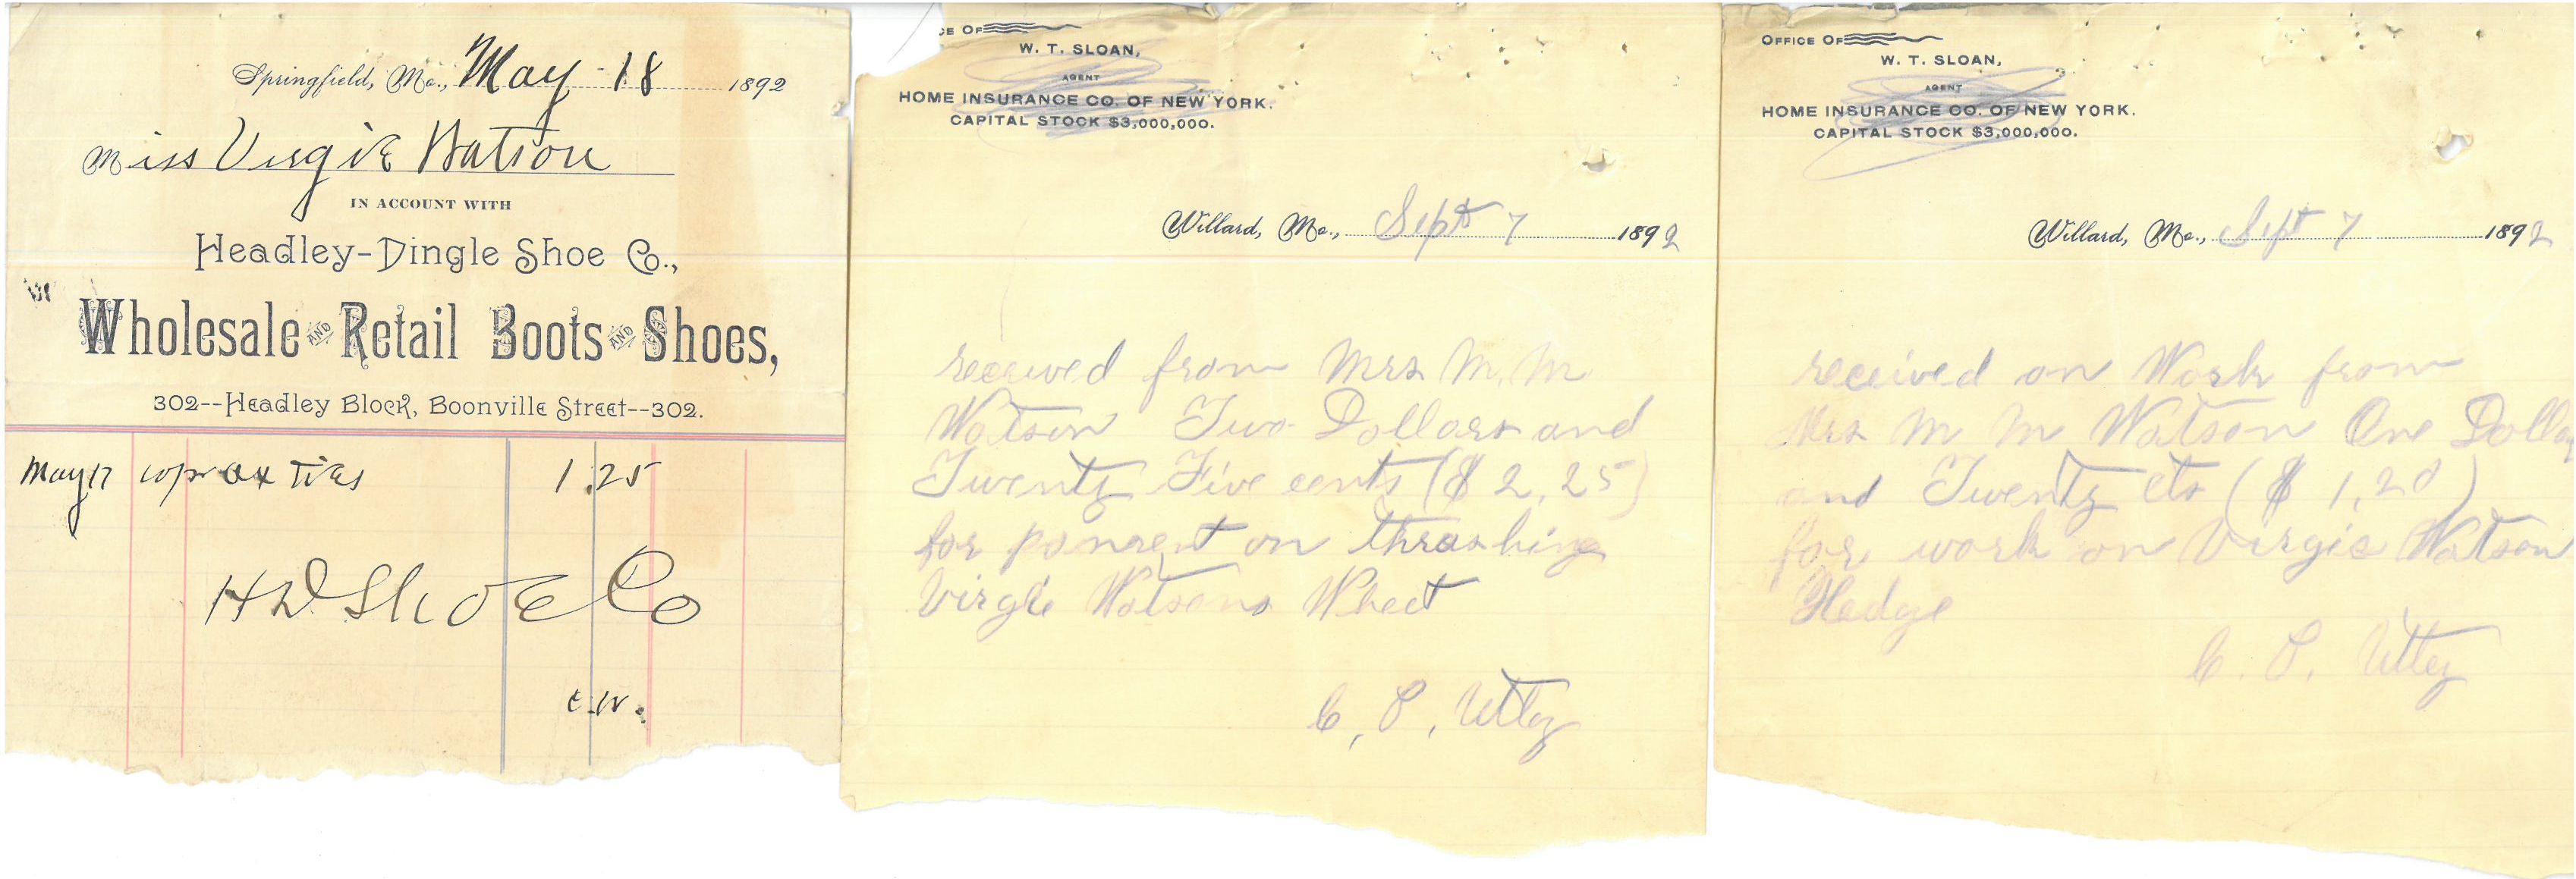 Springfield, Mo., May - 18 1892
Miss Virgie Watson
IN ACCOUNT WITH
Headley-Dingle Shoe Co.,
Wholesale AND Retail Boots AND Shoes,
302--Headley Block, Boonville Street--302.
May 17 ox Ties 1.25
H D Shoe Co
CE OF
W. T. SLOAN,
AGENT
HOME INSURANCE CO. OF NEW YORK.
CAPITAL STOCK $3,000,000.
Willard, Mo., Sept 7 1892
received from Mrs M. M
Watson Two Dollars and
Twenty Five cents ($ 2,25)
for on thrashing
Virgie Watsons Wheet
C, P, Utley
OFFICE OF
W. T. SLOAN,
AGENT
HOME INSURANCE CO. OF NEW YORK.
CAPITAL STOCK $3,000,000.
Willard, Mo., Sept 7 1892
received on Work from
Mrs M M Watson One Dollar
and Twenty cts ($ 1,20)
for work on Virgie Watson
Hedge
C. P. Utley